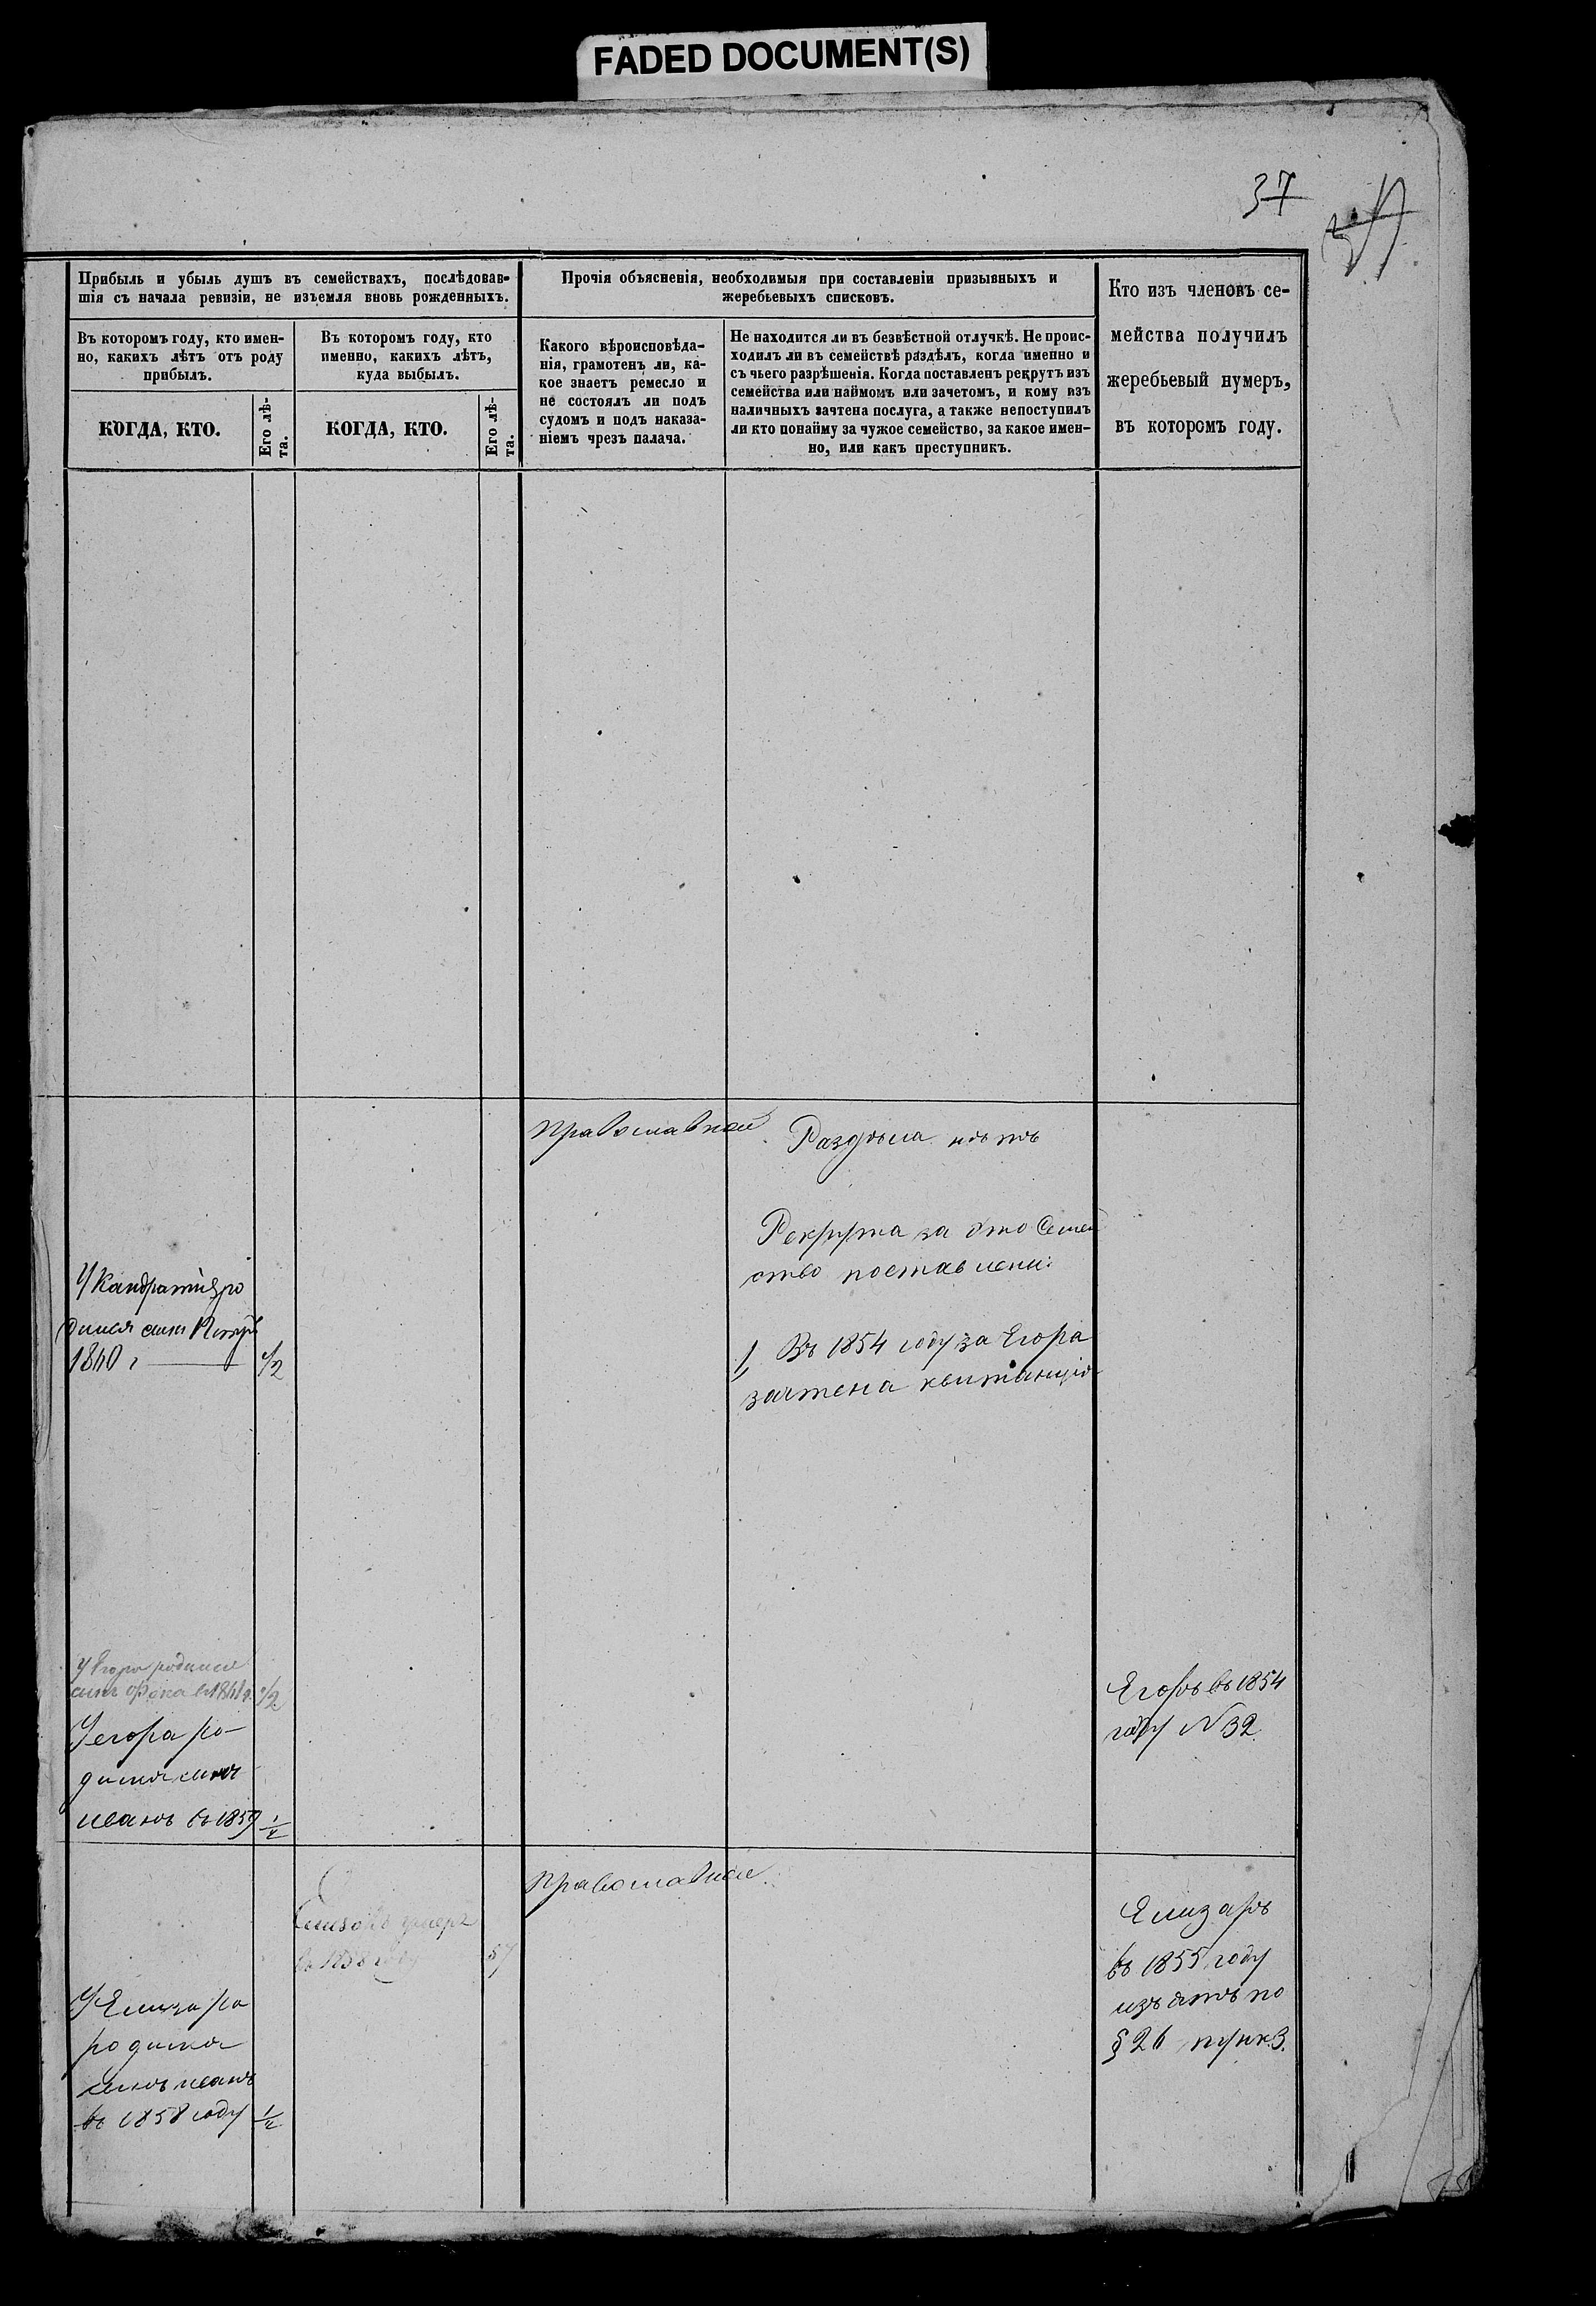 FADED DOCUMENT(S)
37
Прибыль и убыль душъ въ семействахъ, послѣдовав-
шія съ начала ревизіи, не изъемля вновь рожденныхъ.
Въ которомъ году, кто имен-
но, какихъ лѣтъ отъ роду
прибылъ.
КОГДА, КТО.
Его лѣ-
та.
Въ которомъ году, кто
именно, какихъ лѣтъ,
куда выбылъ.
КОГДА, КТО.
Его лѣ-
та.
Прочія объясненія, необходимыя при составленіи призывныхъ и
жеребьевыхъ списковъ.
Какого вѣроисповѣда-
нія, грамотенъ ли, ка-
кое знаетъ ремесло и
не состоялъ ли подъ
судомъ и подъ наказа-
ніемъ чрезъ палача.
Не находится ли въ безвѣстной отлучкѣ. Не проис-
ходилъ ли въ семействѣ раздѣлъ, когда именно и
съ чьего разрѣшенія. Когда поставленъ рекрутъ изъ
семейства или наймомъ или зачетомъ, и кому изъ
наличныхъ зачтена послуга, а также непоступилъ
ли кто понайму за чужое семейство, за какое имен-
но, или какъ преступникъ.
Кто изъ членовъ се-
мейства получилъ
жеребьевый нумеръ,
въ которомъ году.
Православной
Раздѣла нѣтъ
Рекрута за это Семей
ство поставлены:
1, Въ 1854 году за Егора
зачтена квитанція
У Кандратія ро
дился сынъ Петръ
1860 г 1/2
У Егора родился
сынъ Фока в 1861 г. 1/2
У егора ро-
дился сынъ
иванъ въ 1859 1/2
Егоръ въ 1854
году N 32
Православной
въ 1858 году 57
У Елизара
родился
сынъ иванъ
въ 1858 году 1/2
Елизаръ
въ 1855 году
изъятъ по
§ 26 пунк. 3.